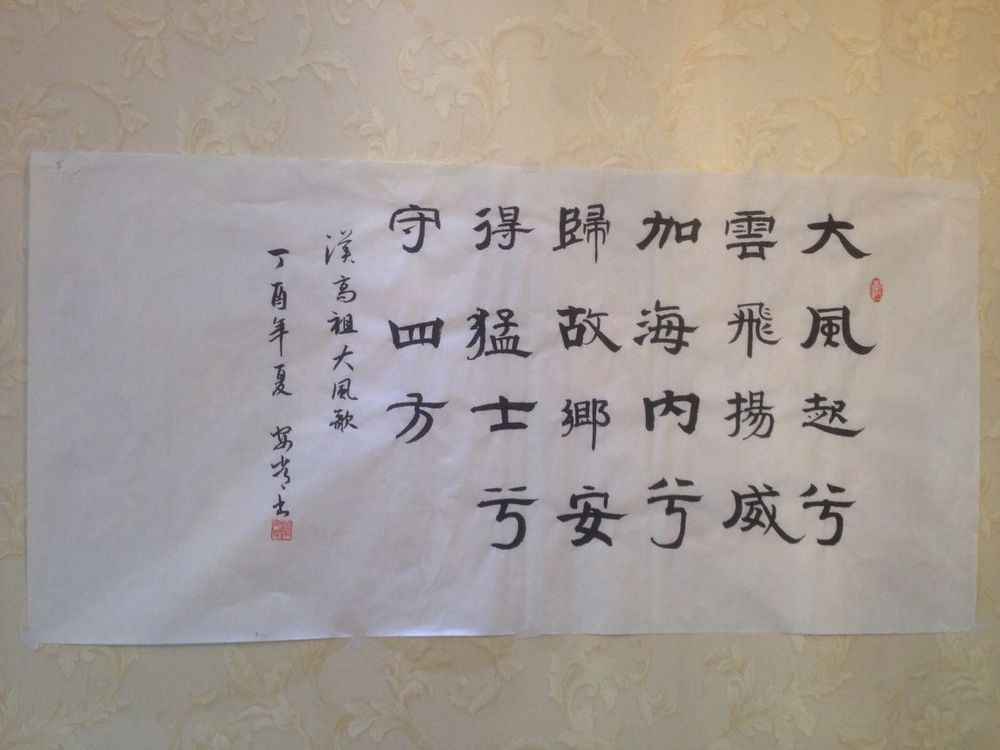 大風起兮
雲飛揚威
加海内兮
歸故鄉安
得猛士兮
守四方
漢高祖大風歌
丁酉年夏 书